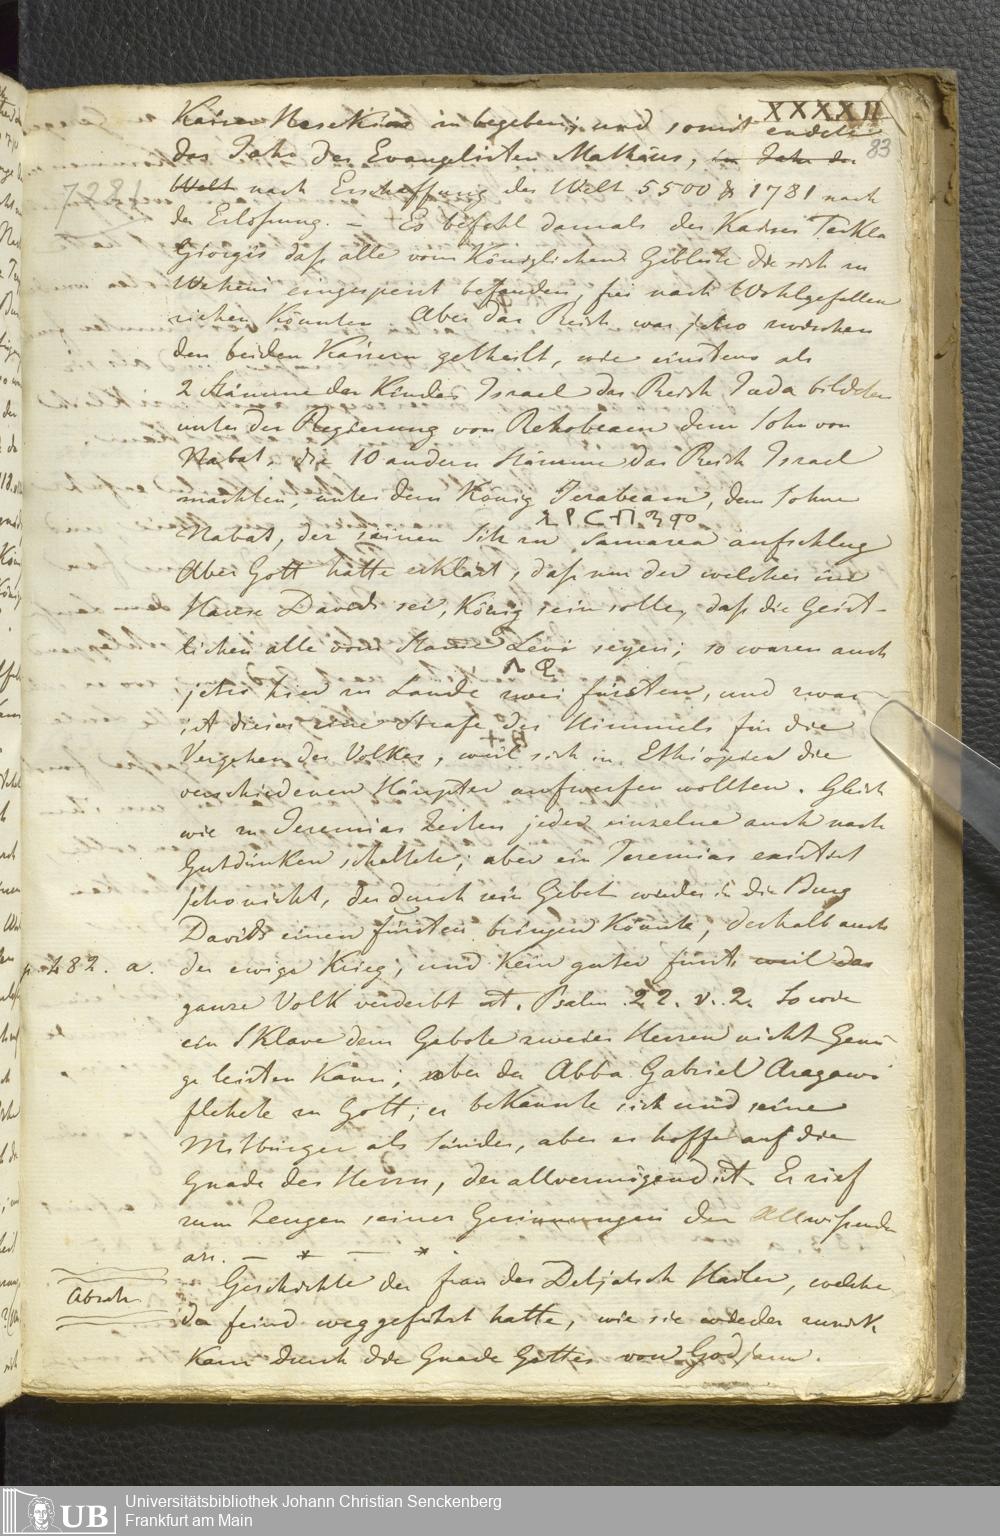 XXXXII
83
Kaiser Hesekias zu begeben; und somit endete
das Jahr des Evangelisten Mathäus, in Jahr der
Welt nach Erschaffung der Welt 5500 & 1781 nach
7281
der Erlösung. — Es befahl damals der Kaiser Tekla
Giorgis daß alle vom Königlichen Geblüte die sich in
Weheni eingesperrt befanden, frei nach Wohlgefallen
ziehen könnten. Aber das Reich war jetzo zwischen
den beiden Kaisern getheilt, wie einstens als
2 Stämme der Kinder Israel das Reich Juda bildeten
unter der Regierung von Rehobeam dem Sohn von
Nabat, die 10 andern Stämme das Reich Israel
machten, unter dem König Jerabeam, dem Sohne
Nabat, der seinen Sitz zu Samarea aufschlug
Aber Gott hatte erklärt, daß nur der welcher im
Hause Davids sei, König sein solle, daß die Geist-
lichen alle vom Stamme Levi seyen; so waren auch
jetzo hier zu Lande zwei fürsten, und zwar
ist dieses eine Strafe des Himmels für die
Vergehen des Volkes, weil sich in Ethiopien die
verschiedenen Häupter aufwerfen wollten. Gleich
wie zu Jeremias Zeiten jeder einzelne auch nach
Gutdünken schaltete; aber ein Jeremias existirt
jetzo nicht, der durch sein Gebet wieder in die Burg
Davids einen fürsten bringen könnte, deshalb auch
p. 482. a. der ewige Krieg, und kein guter fürst, weil das
ganze Volk verderbt ist. Psalm 22. v. 2. So wie
ein Sklave dem Gebote zweier Herren nicht Genü-
ge leisten kann; aber der Abba Gabriel Aragawi
flehete zu Gott, er bekannte sich und seine
Mitbürger als Sünder, aber er hoffe auf die
Gnade des Herrn, der allvermögend ist. Er rief
zum Zeugen seiner Gesinnungen den Allwissenden
an. — * — *
Absch. Geschichte der frau des Detjatsch Hailu, welche
der feind weggeführt hatte, wie sie wieder zurück
kam durch die Gnade Gottes von Godjam.
Universitätsbibliothek Johann Christian Senckenberg
Frankfurt am Main
UB